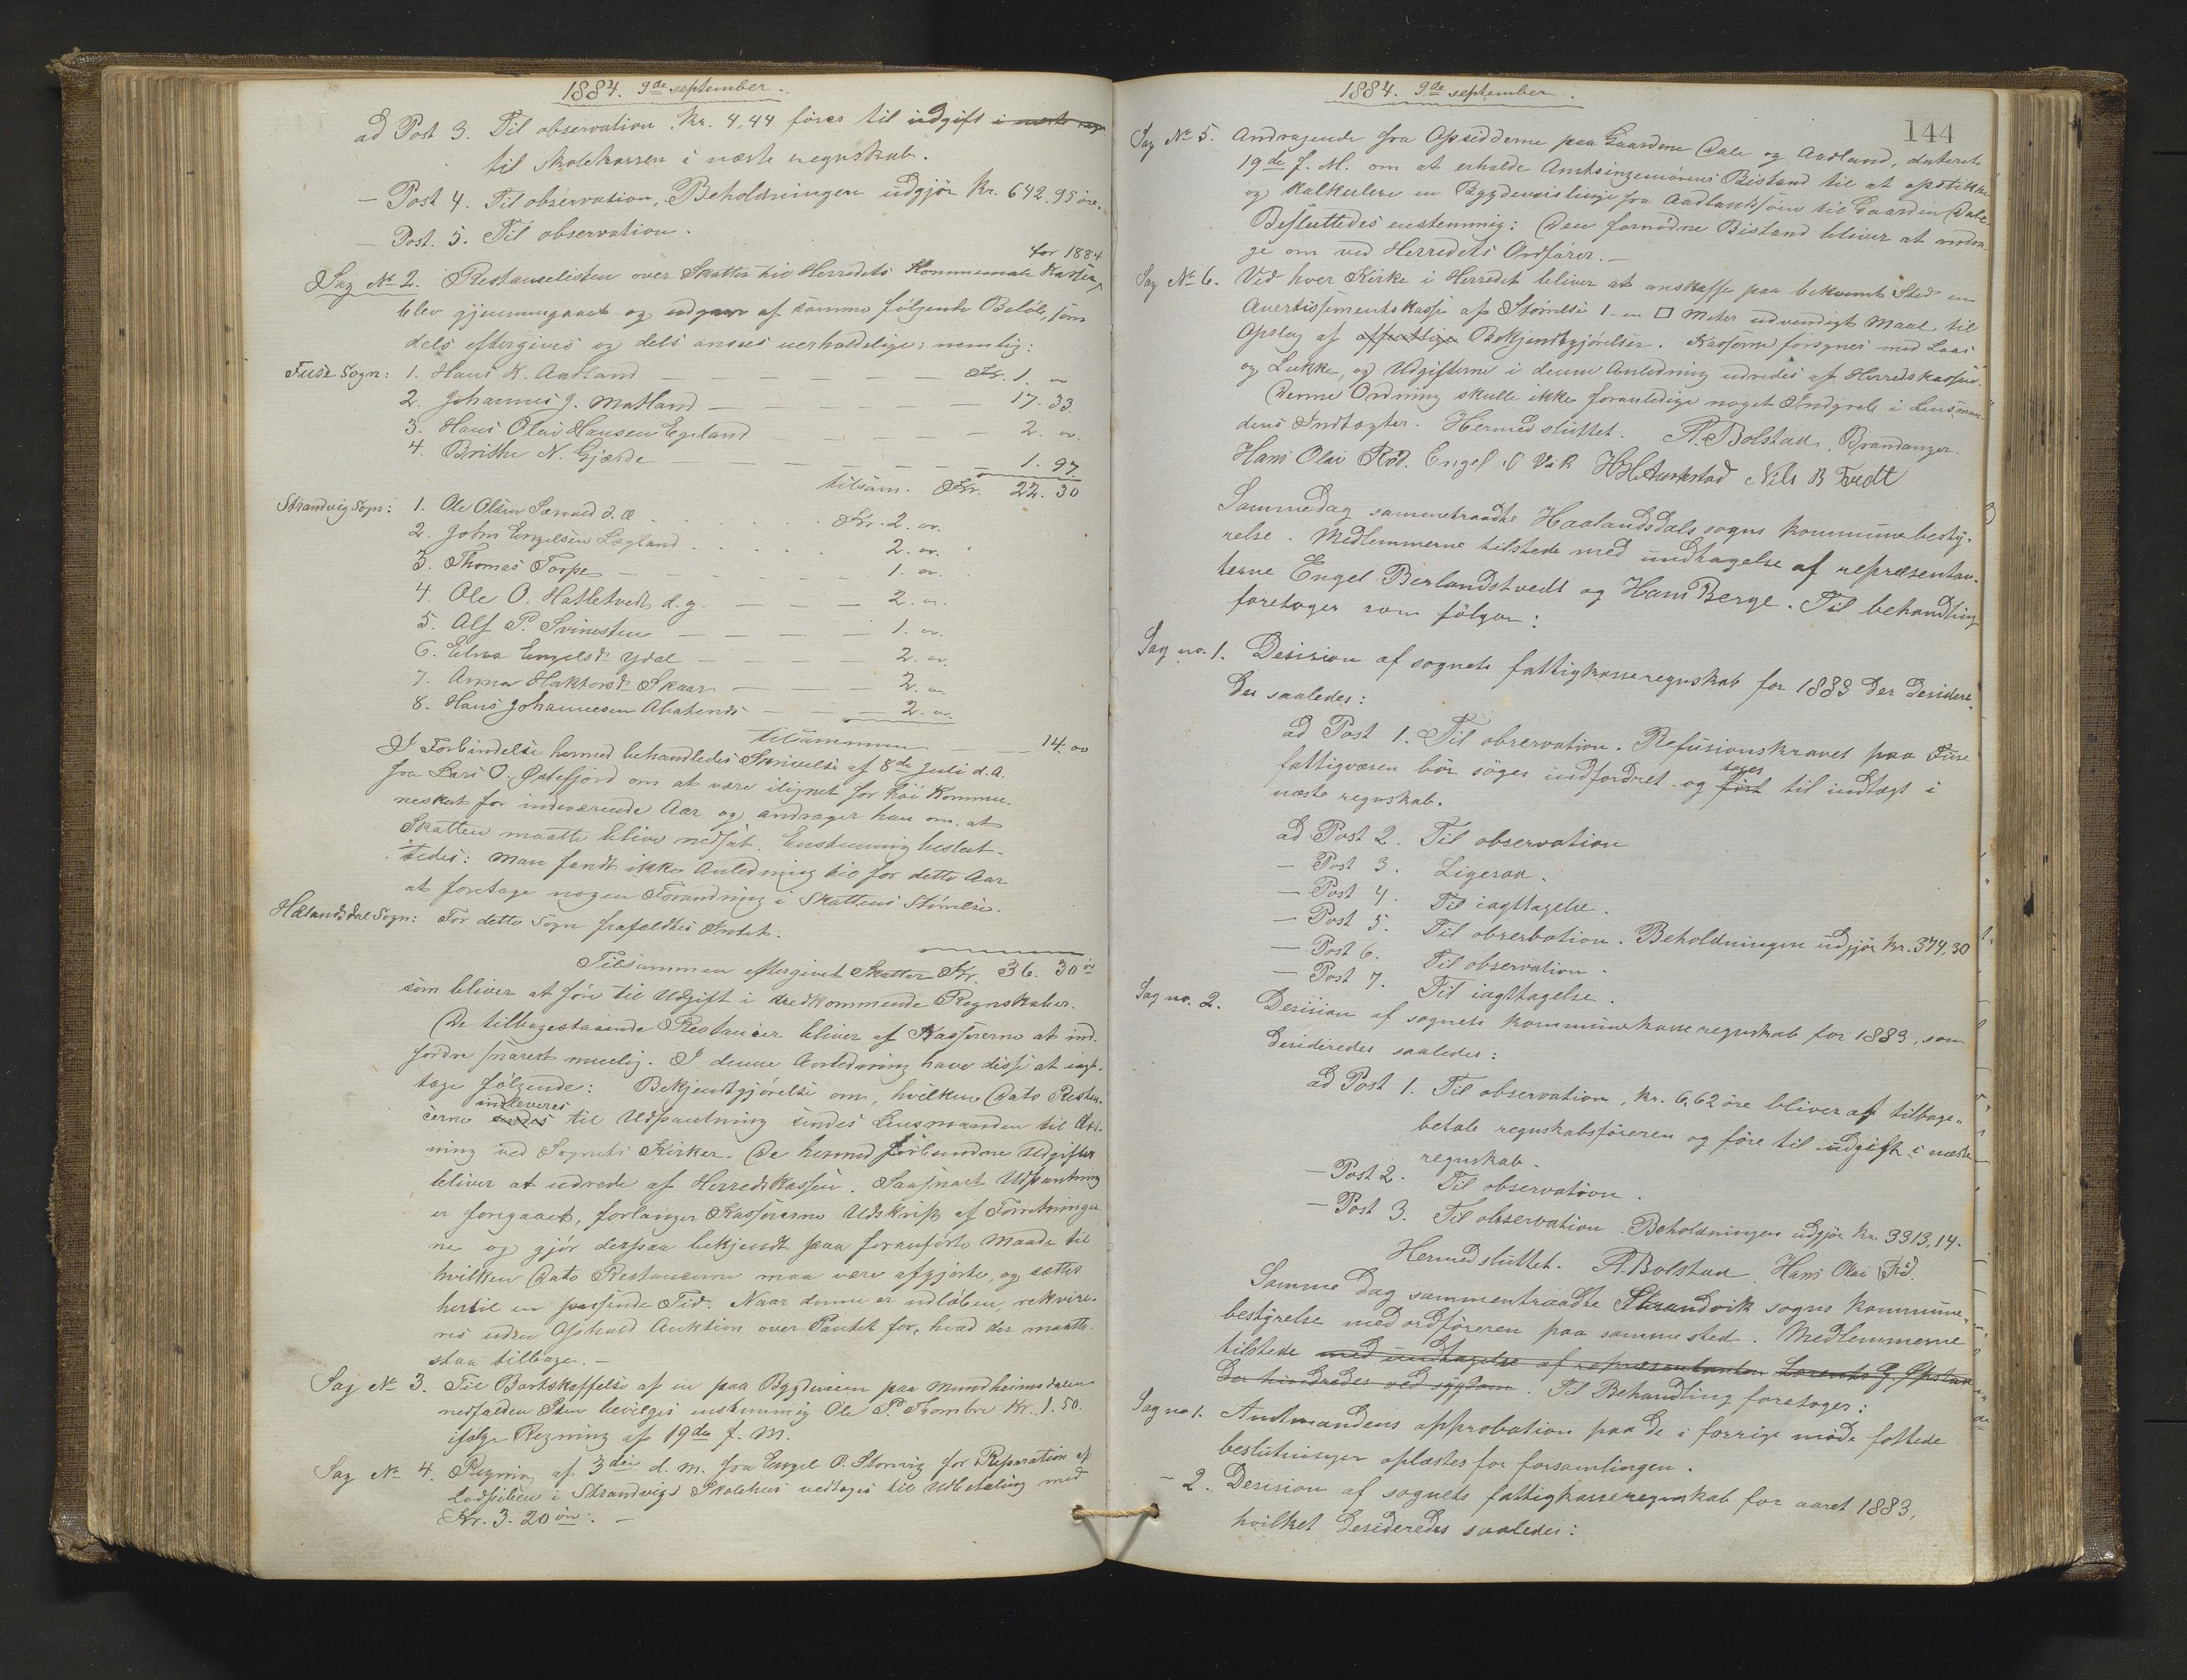 1884. 9de september.
ad Post 3. Til observation. Kr. 4,44 föres til udgift i næste regn
til skolekassen i næste regnskab.
— Post 4. Til observation, Beholdningen udgjör Kr. 642.95 öre.
— Post. 5. Til observation.
Sag No 2. Restancelisten over Skatter til Herredets Kommunale Kasser for 1884
blev gjennemgaaet og udgaar af samme følgende Beløb, som
dels eftergives og dels ansees uerholdelige; nemlig:
Fuse Sogn: 1. Hans K. Aadland — Kr. 1. "
2. Johannes J. Matland — 17. 33.
3. Hans Olai Hansen Egeland — 2. "
4. Brithe N. Gjærde — 1. 97.
tilsam. Kr. 22. 30
Strandvig Sogn: 1. Ole Olsen Særvold d. æ. Kr. 2. "
2. John Engelsen Legland 2. "
3. Thomas Torpe — 1. "
4. Ole O. Hatletvedt d. y. — 2. "
5. Alf P. Svinesteen — 1. "
6. Elna Engelsdr Ydal — 2. "
7. Anna Haktorsdr Skaar — 2. "
8. Hans Johannesen — 2. "
tilsammen — 14. 00
I Forbindelse hermed behandledes Skrivelse af 8de Juli d. A.
fra Lars O. Østefjord om at være ilignet for høi Kommu-
neskat for indeværende Aar og andrager han om, at
Skatten maatte blive nedsat. Enstemmig beslut-
tedes: Man fandt ikke Anledning til for dette Aar
at foretage nogen Forandring i Skattens Størrelse.
Hålandsdal Sogn: For dette Sogn frafaldtes Intet.
Tilsammen eftergivet Skatter Kr. 36. 30 ør
som bliver at føre til Udgift i vedkommende Regnskaber.
De tilbagestaaende Restancer bliver af Kassererne at ind-
fordre snarest muelig. I denne Anledning have disse at iagt-
tage følgende: Bekjendtgjørelse om, hvilken Dato Restan-
cerne sendes indleveres til Udpantning sendes Lensmanden til Oplæs-
ning ved Sognets Kirker. De hermed forbundne Udgifter
bliver at udrede af Herredskassen. Saasnart Udpantning
er foregaaet, forlanger Kassererne Udskrift af Forretninger-
ne og gjør derpaa bekjendt paa foranførte Maade til
hvilken Dato Restancerne maa være afgjorte, og sættes
hertil en passende Tid. Naar denne er udløben, rekvire-
res uden Ophold Auktion over Pantet for, hvad der maatte
staa tilbage. —
Sag No 3. Til Bortskaffelse af en paa Bygdeveien paa Mundheimsdalen
nedfalden Sten bevilges enstemmig Ole P. Tombre Kr. 1.50.
ifølge Regning af 19de f. M.
Sag No 4. Regning af 3die d. M. fra Engel O. Storvig for Reparation af
i Strandvigs Skolehus vedtages til Udbetaling med
Kr. 3. 20 ør. —
1884. 9de september.
144
Sag No 5. Andragende fra Opsidderne paa Gaardene Dale og Aadland, dateret
19de f. M. om at erholde Amtsingeniørens Bistand til at opstikke
og kalkulere en Bygdeveislinje fra Aadlandssøen til Gaarden Dale.
Besluttedes enstemmig: Den fornødne Bistand bliver at andra-
ge om ved Herredets Ordfører. —
Sag No 6. Ved hver Kirke i Herredet bliver at anskaffe paa bekvemt Sted en
Avertissementskasse af Størrelse 1- en □ Meter udvendigt Maal til
Opslag af offentlige Bekjendtgjørelser. Kasserne forsynes med Laas
og Lukke, og Udgifterne i denne Anledning udredes af Herredskassen.
Denne Ordning skulle ikke foranledige noget Indgreb i Lensman-
dens Indtægter. Hermed sluttet. A. Bolstad. Brandanger.
Hans Olai Rød. Engel O Vik H H Aurkstad Nils B Tvedt
Sammedag sammentraadte Haalandsdals sogns kommunebesty-
relse. Medlemmerne tilstede med undtagelse af repræsentan-
terne Engel Berlandstvedt og Hans Berge. Til behandling
foretoges som fölger:
Sag no. 1. Decision af sognets fattigkasseregnskab for 1883 der decidere-
des saaledes:
ad Post 1. Til observation. Refusionskravet paa Fuse
fattigvæsen bör söges indfordret og först tages til indtægt i
næste regnskab.
ad Post 2. Til observation
— Post 3. Ligesaa.
— Post 4. Til iagttagelse.
— Post 5. Til observation. Beholdningen udgjör Kr. 374,30
— Post 6. Til observation.
— Post 7. Til iagttagelse.
Sag no. 2. Decision af sognets kommunekasseregnskab for 1883, som
decideredes saaledes:
ad Post 1. Til observation, kr. 6,62 öre bliver at tilbage-
betale regnskabsföreren og före til udgift i næste
regnskab.
— Post 2. Til observation.
— Post 3. Til observation. Beholdningen udgjör kr. 3313,14.
Hermed sluttet. A. Bolstad. Hans Olai Rød.
Samme Dag sammentraadte Strandvik sogns kommune-
bestyrelse med ordföreren paa samme sted. Medlemmerne
tilstede med undtagelse af repræsentanten Lorents G. Opstad
der hindredes ved sygdom. Til Behandling foretoges:
Sag no 1. Amtmandens approbation paa de i forrige möde fattede
beslutninger oplæstes for forsamlingen.
— 2. Decision af sognets fattigkasseregnskab for aaret 1883,
hvilket decideredes saaledes: